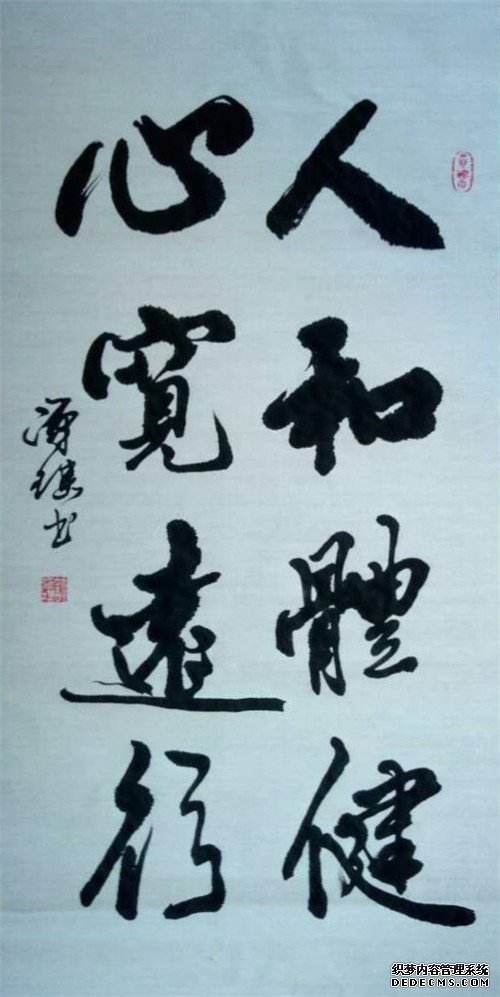 人和體健
心寬遠行
书
织梦内容管理系统
DEDECMS.COM